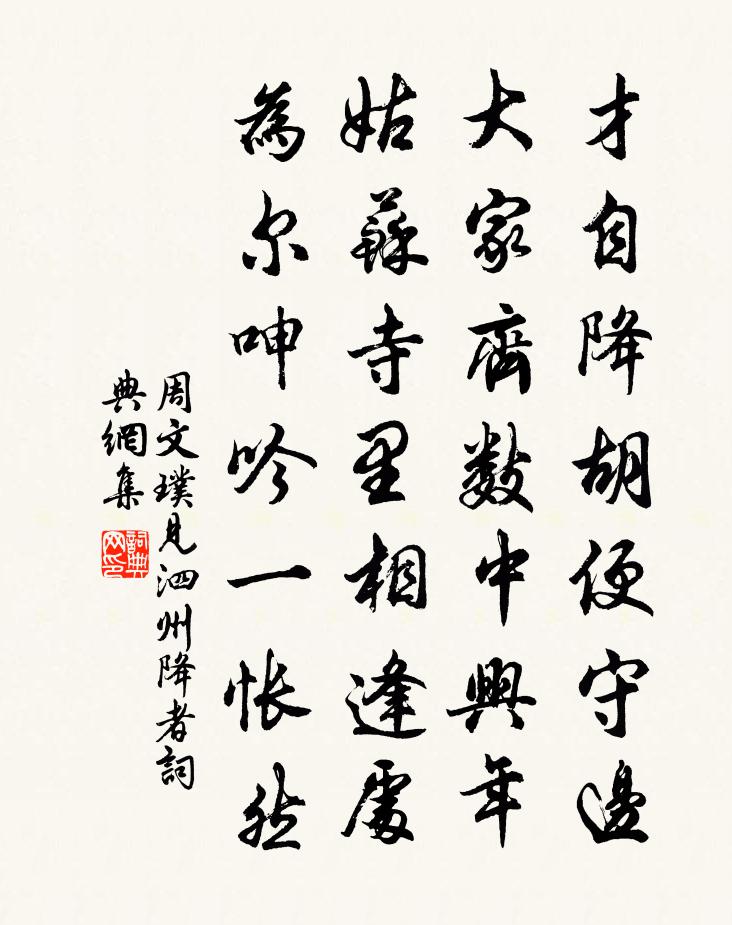 才自降胡便守邊
大家齊數中興年
姑蘇寺里相逢處
為尔呻吟一悵然
周文璞見泗州降者詞
典網集
詞典網印